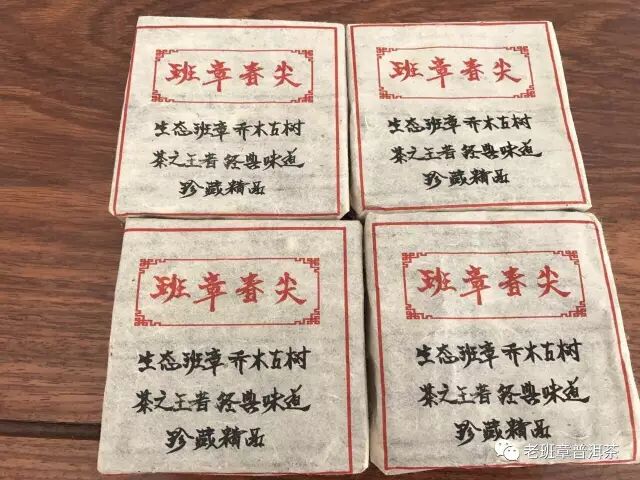 班章春尖
生态班章乔木古树
茶之王者 经典味道
珍藏精品
班章春尖
生态班章乔木古树
茶之王者 经典味道
珍藏精品
班章春尖
生态班章乔木古树
茶之王者 经典味道
珍藏精品
班章春尖
生态班章乔木古树
茶之王者 经典味道
珍藏精品
老班章普洱茶